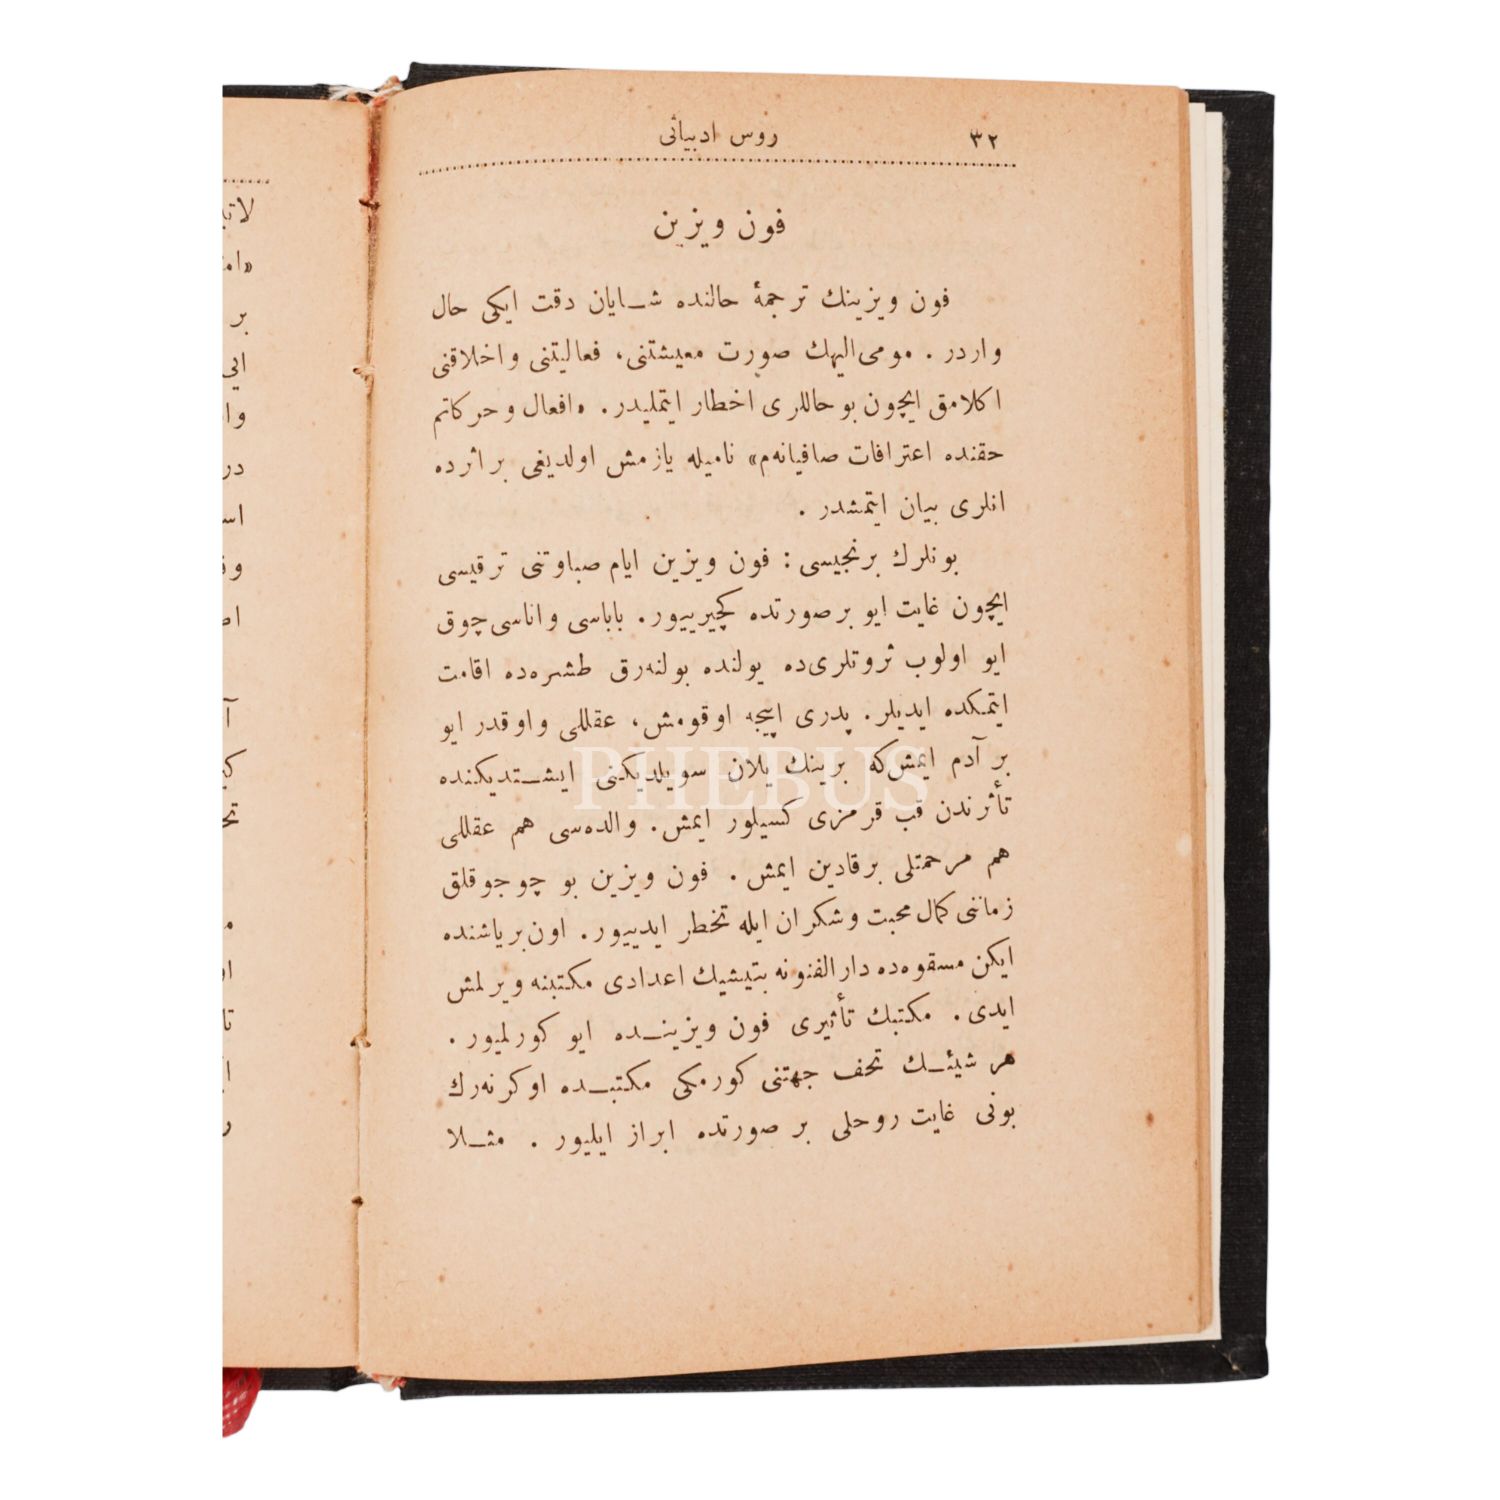 ٣٢
روس ادبیاتی
فون ویزین
فون ویزینك ترجمهٔ حالنده شایان دقت ایکی حال
واردر . مومی‌الیهك صورت معیشتنی، فعالیتنی واخلاقنی
اکلامق ایچون بو حاللری اخطار ایتملیدر. «افعال و حرکاتم
حقنده اعترافات صافیانه‌م» نامیله یازمش اولدیغی بر اثرده
انلری بیان ایتمشدر .
بونلرك برنجیسی : فون ویزین ایام صباوتنی ترقیسی
ایچون غایت ایو بر صورتده کچیرییور. باباسی واناسی چوق
ایو اولوب ثروتلری‌ده یولنده بولنه‌رق طشره‌ده اقامت
ایتمکده ایدیلر. پدری اییجه اوقومش، عقللی واوقدر ایو
بر آدم ایمش‌که برینك یلان سویلدیکنی ایشتدیکنده
تأثرندن قب قرمزی کسیلور ایمش. والده‌سی هم عقللی
هم مرحمتلی بر قادین ایمش. فون ویزین بو چوجوقلق
زماننی کمال محبت وشکران ایله تخطر ایدییور. اون بر یاشنده
ایکن مسقوه‌ده دار الفنونه بتیشیك اعدادی مکتبنه ویرلمش
ایدی. مکتبك تأثیری فون ویزینده ایو کورلمیور.
هر شیئك تحف جهتنی کورمکی مکتبده اوکرنه‌رك
بونی غایت روحلی بر صورتده ابراز ایلیور . مثلا
PHEBUS
لا
بر
در